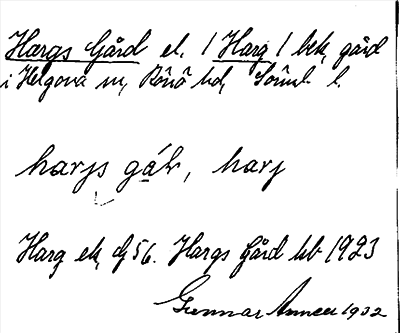 Hargs Gård el. / Harg / bek, gård
i Helgona sn, Rönö hd, Söml. l.
harjs gáḷ, harj
Harg ek, dj 56. Hargs Gård kb 1923
Gunnar Annell 1932